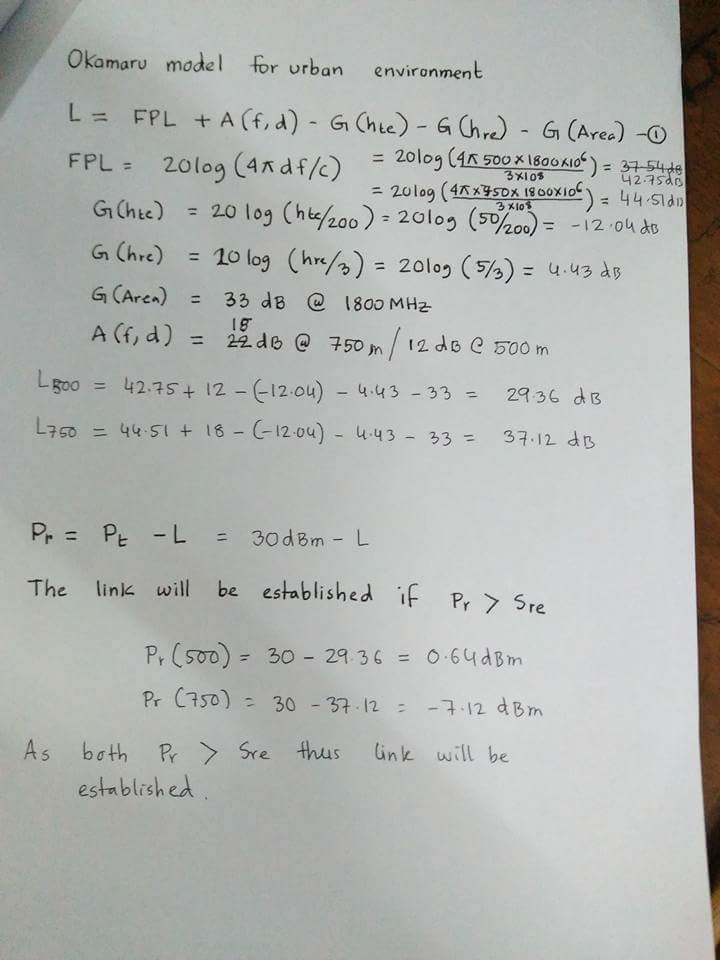 Okamaru model for urban environment
L = FPL + A(f,d) - G(hte) - G(hre) - G(Area) -①
FPL = 20log(4πdf/c) = 20log(4π500×1800×10⁶/3×10⁸) = 37.54dB 42.75dB
= 20log(4π×750×1800×10⁶/3×10⁸) = 44.51dB
G(hte) = 20 log(hte/200) = 20log(50/200) = -12.04 dB
G(hre) = 20log (hre/3) = 20log(5/3) = 4.43 dB
G(Area) = 33 dB @ 1800 MHz
A(f,d) = 22 18 dB @ 750m / 12 dB @ 500m
L500 = 42.75 + 12 - (-12.04) - 4.43 - 33 = 29.36 dB
L750 = 44.51 + 18 - (-12.04) - 4.43 - 33 = 37.12 dB
Pr = Pt - L = 30dBm - L
The link will be established if Pr > Sre
Pr(500) = 30 - 29.36 = 0.64dBm
Pr (750) = 30 - 37.12 = -7.12 dBm
As both Pr > Sre thus link will be
established.